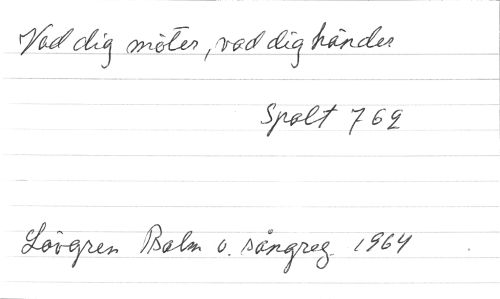 Vad dig möter, vad dig händer
Spalt 762
Lövgren Psalm o. sångreg. 1964